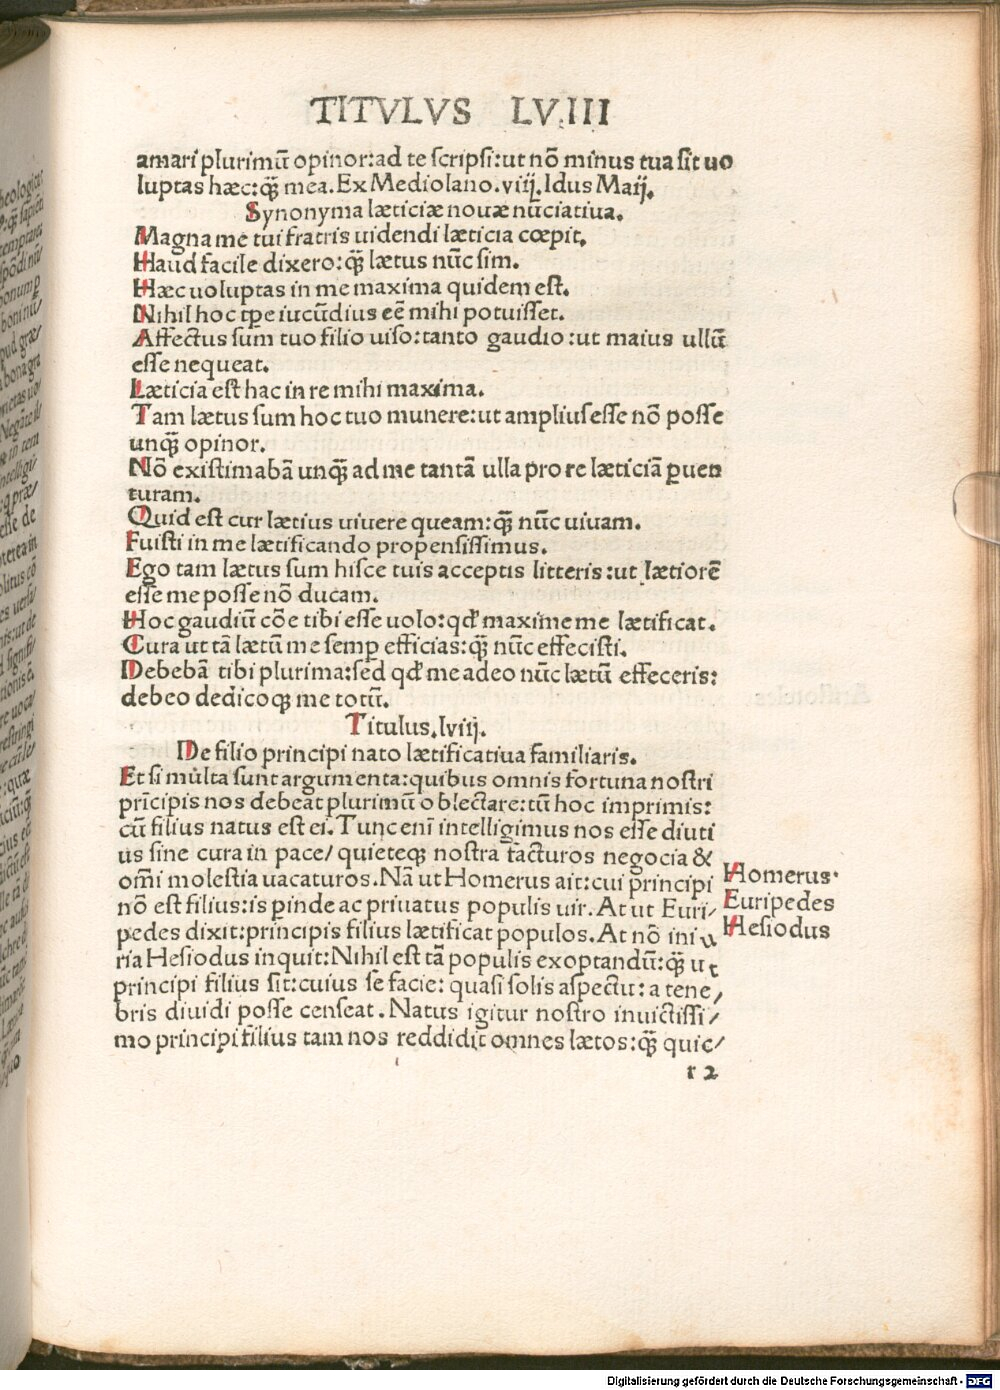 TITVLVS LVIII
amari plurimū opinor: ad te scripsi: ut nō minus tua sit uo
luptas hæc: q̄ȝ mea. Ex Mediolano. viij. Idus Maij.
Synonyma læticiæ nouæ nūciatiua.
Magna me tui fratris uidendi læticia cœpit.
Haud facile dixero: q̄ȝ lætus nūc sim.
Hæc uoluptas in me maxima quidem est.
Nihil hoc tp̄e iucūdius eē mihi potuisset.
Affectus sum tuo filio uiso: tanto gaudio: ut maius ullū
esse nequeat.
Læticia est hac in re mihi maxima.
Tam lætus sum hoc tuo munere: ut amplius esse nō posse
unq̄ȝ opinor.
Nō existimabā unq̄ȝ ad me tantā ulla pro re læticiā ꝑuen
turam.
Quid est cur lætius uiuere queam: q̄ȝ nūc uiuam.
Fuisti in me lætificando propensissimus.
Ego tam lætus sum hisce tuis acceptis litteris: ut lætiorē
esse me posse nō ducam.
Hoc gaudiū cōe tibi esse uolo: qd̛ maxime me lætificat.
Cura ut tā lætū me semꝑ efficias: q̄ȝ nūc effecisti.
Debebā tibi plurima: sed qd̛ me adeo nūc lætū effeceris:
debeo dedicoqȝ me totū.
Titulus. lviij.
De filio principi nato lætificatiua familiaris.
Et si multa sunt argumenta: quibus omnis fortuna nostri
prīcipis nos debeat plurimū oblectare: tū hoc imprimis:
cū filius natus est ei. Tunc enī intelligimus nos esse diuti
us sine cura in pace/ quieteqȝ nostra facturos negocia &
omī molestia uacaturos. Nā ut Homerus ait: cui principi
nō est filius: is ꝑinde ac priuatus populis uir. At ut Euri/
pedes dixit: principis filius lætificat populos. At nō iniu
ria Hesiodus inquit: Nihil est tā populis exoptandū: q̄ȝ ut
principi filius sit: cuius se facie: quasi solis aspectu: a tene/
bris diuidi posse censeat. Natus igitur nostro inuictissi/
mo principi filius tam nos reddidit omnes lætos: q̄ȝ quic/
Homerus.
Euripedes
Hesiodus
r 2
Digitalisierung gefördert durch die Deutsche Forschungsgemeinschaft - DFG